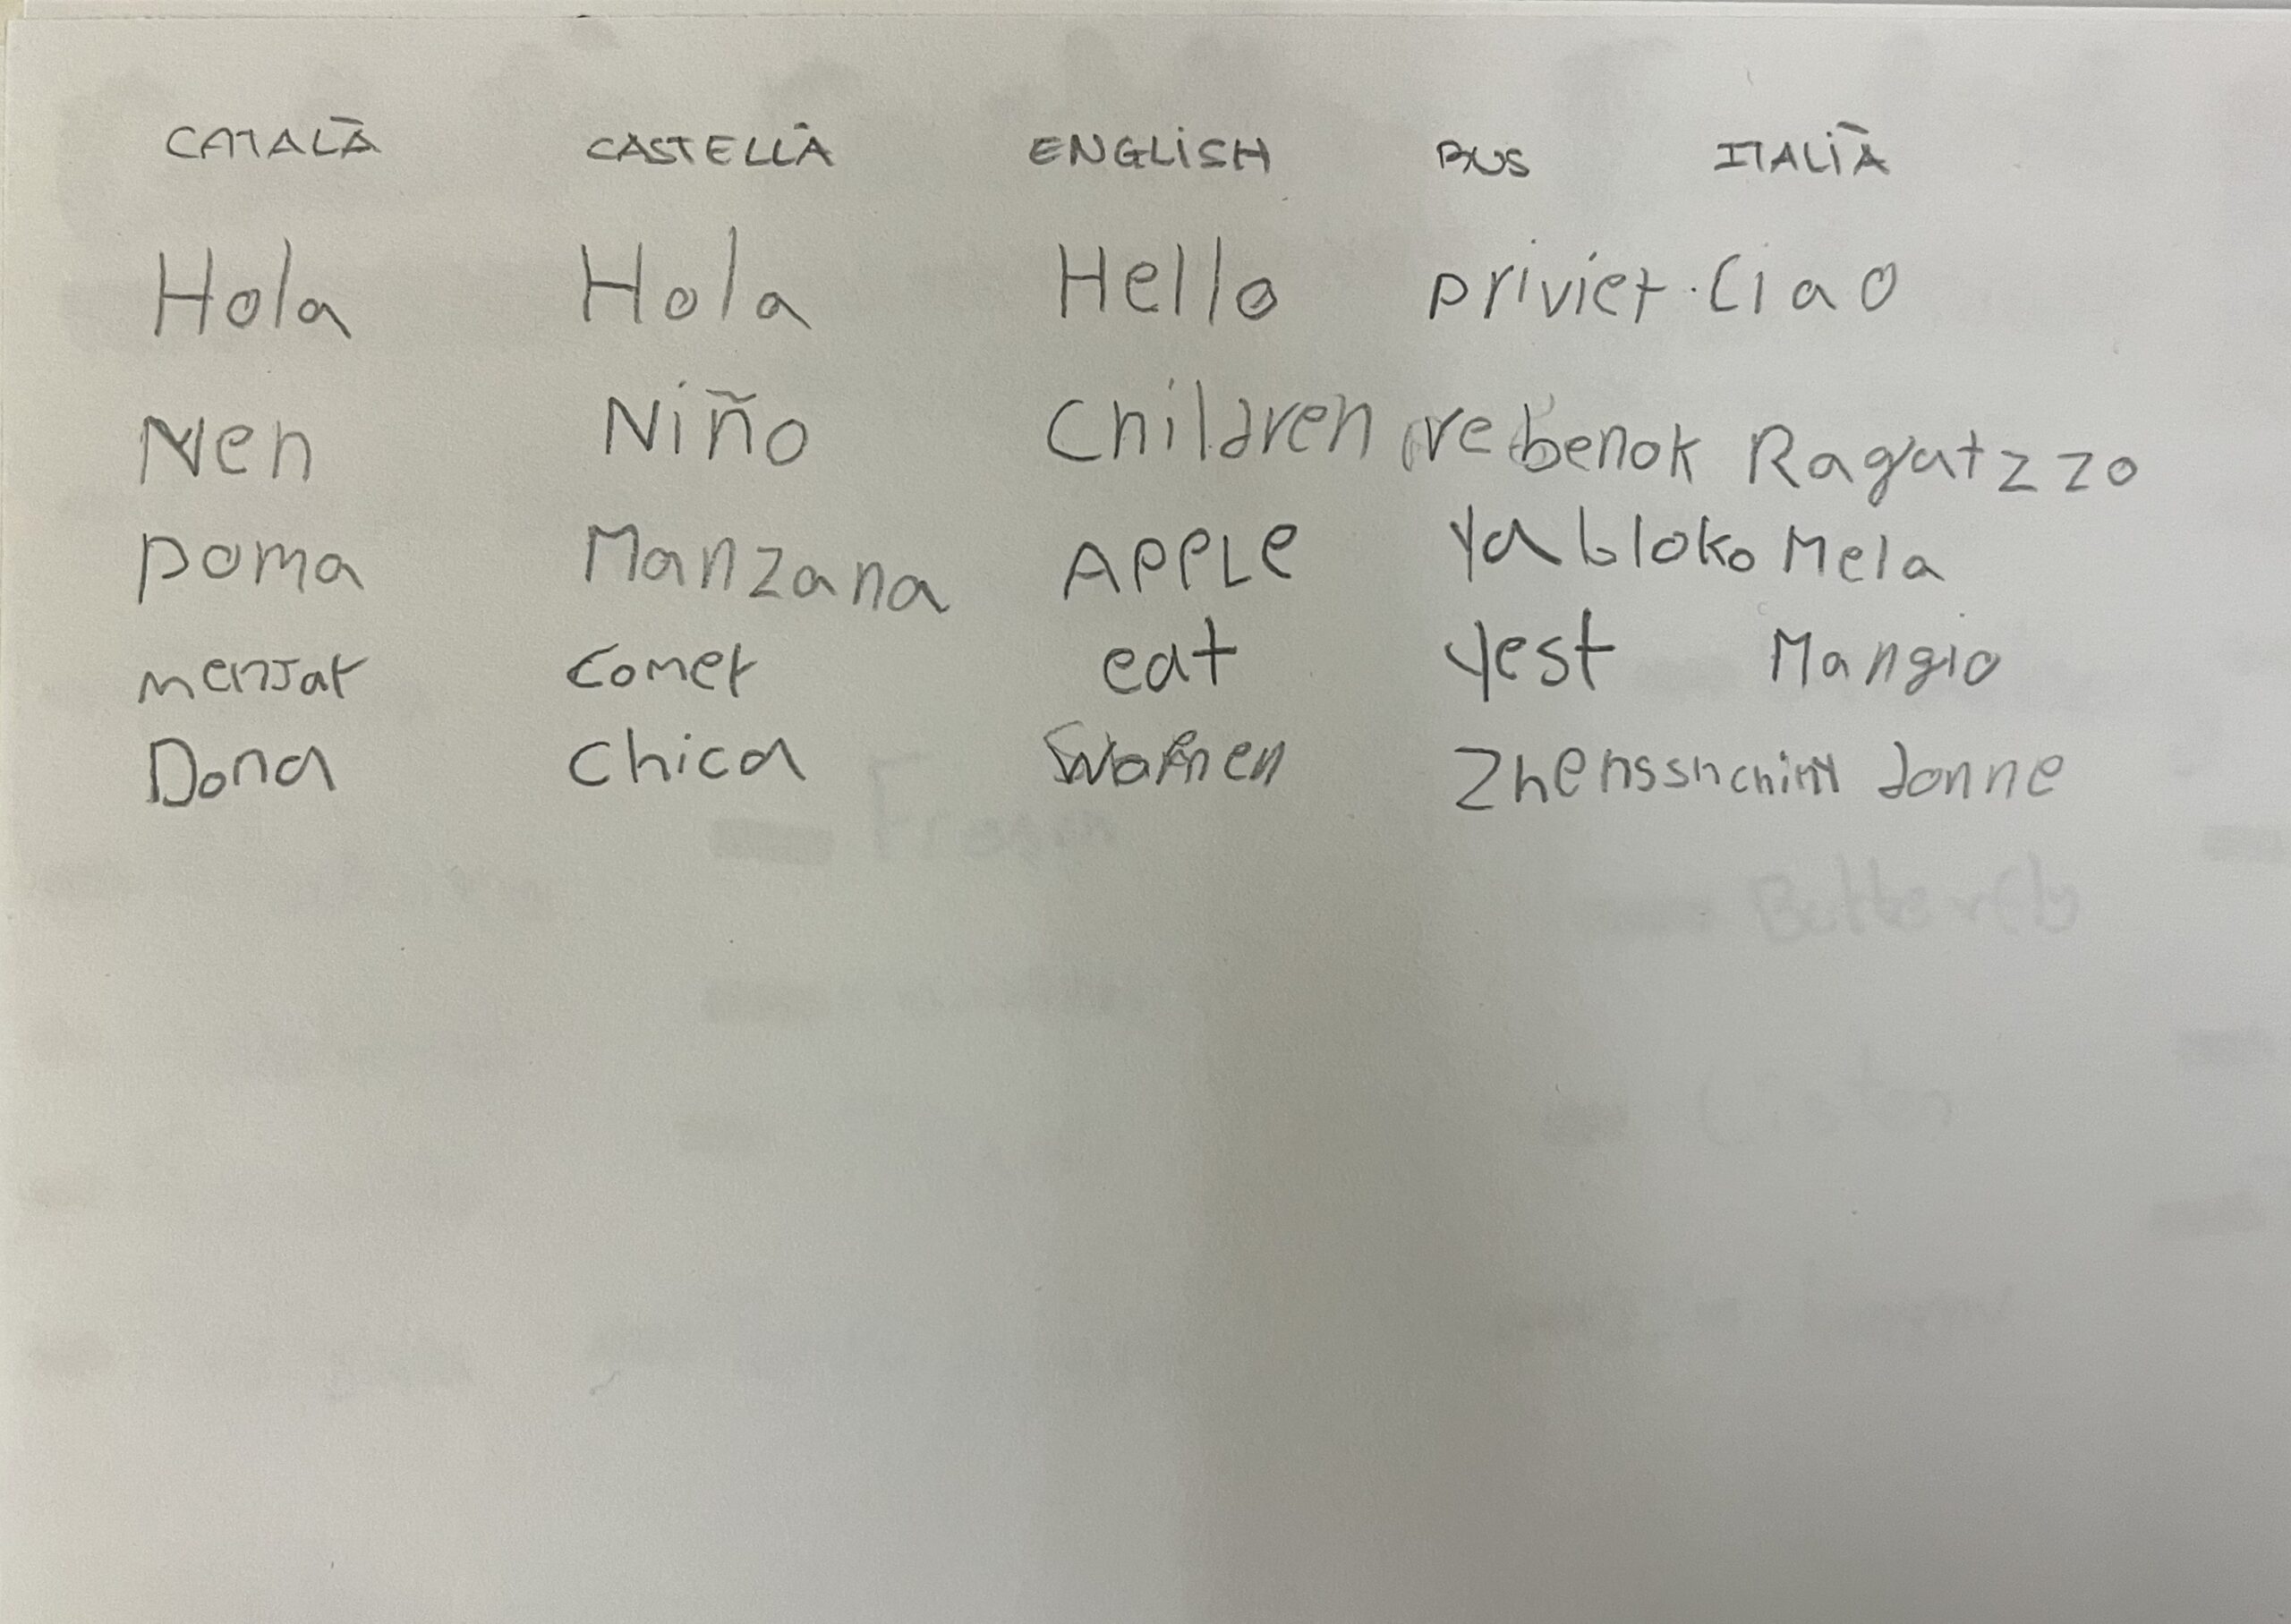 CATALÀ CASTELLÀ ENGLISH RUS ITALIÀ
Hola Hola Hello priviet. Ciao
Nen Niño Children rebenok Ragatzzo
poma Manzana APPLE Yabloko Mela
menjar comer eat Yest Mangio
Dona Chica Women Zhensshchiny donne
Butterfly